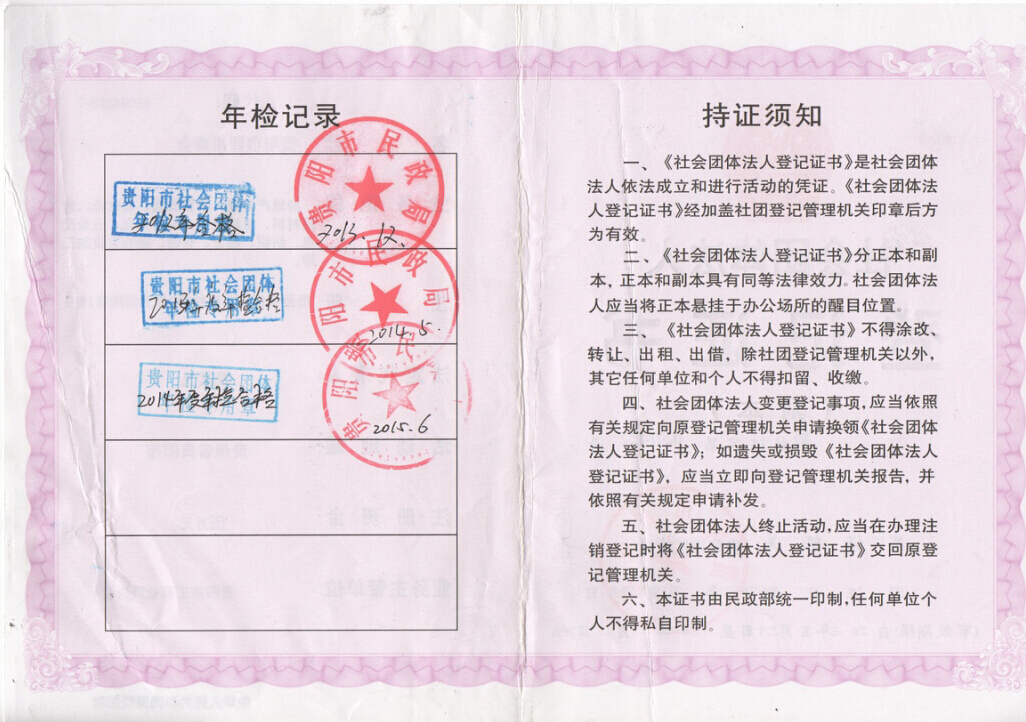 年检记录
贵阳市民政局
贵阳市社会团体
年检合格
2013.12.
贵阳市民政局
贵阳市社会团体
年检专用章
2014.5.
贵阳市民
贵阳市社会团体
2014年度年检合格
2015.6
持证须知
一、《社会团体法人登记证书》是社会团体
法人依法成立和进行活动的凭证。《社会团体法
人登记证书》经加盖社团登记管理机关印章后方
为有效。
二、《社会团体法人登记证书》分正本和副
本，正本和副本具有同等法律效力。社会团体法
人应当将正本悬挂于办公场所的醒目位置。
三、《社会团体法人登记证书》不得涂改、
转让、出租、出借，除社团登记管理机关以外，
其它任何单位和个人不得扣留、收缴。
四、社会团体法人变更登记事项，应当依照
有关规定向原登记管理机关申请换领《社会团体
法人登记证书》；如遗失或损毁《社会团体法人
登记证书》，应当立即向登记管理机关报告，并
依照有关规定申请补发。
五、社会团体法人终止活动，应当在办理注
销登记时将《社会团体法人登记证书》交回原登
记管理机关。
六、本证书由民政部统一印制，任何单位个
人不得私自印制。